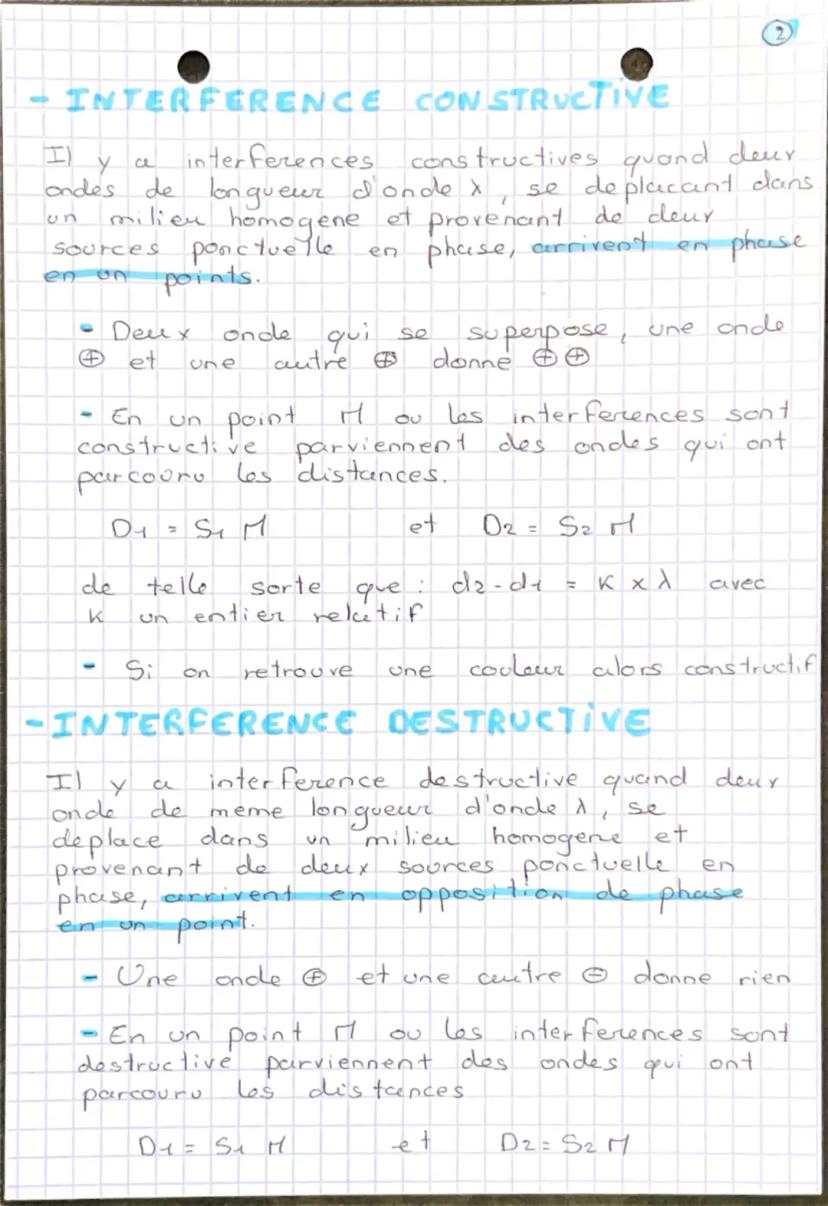 2
- INTERFERENCE CONSTRUCTIVE
Il y a interferences constructives quand deux
ondes de longueur d'onde λ, se deplacant dans
un milieu homogene et provenant de deux
sources ponctuelle en phase, arrivent en phase
en un points.
- Deux onde qui se superpose, une onde
⊕ et une autre ⊕ donne ⊕⊕
- En un point M ou les interferences sont
constructive parviennent des ondes qui ont
parcouru les distances.
D1 = S1 M et D2 = S2 M
de telle sorte que : d2-d1 = K x λ avec
K un entier relatif
- Si on retrouve une couleur alors constructif
- INTERFERENCE DESTRUCTIVE
Il y a interference destructive quand deux
onde de meme longueur d'onde λ, se
deplace dans un milieu homogene et
provenant de deux sources ponctuelle en
phase, arrivent en opposition de phase
en un point.
- Une onde ⊕ et une autre ⊖ donne rien
- En un point M ou les interferences sont
destructive parviennent des ondes qui ont
parcouru les distances
D1 = S1 M et D2 = S2 M